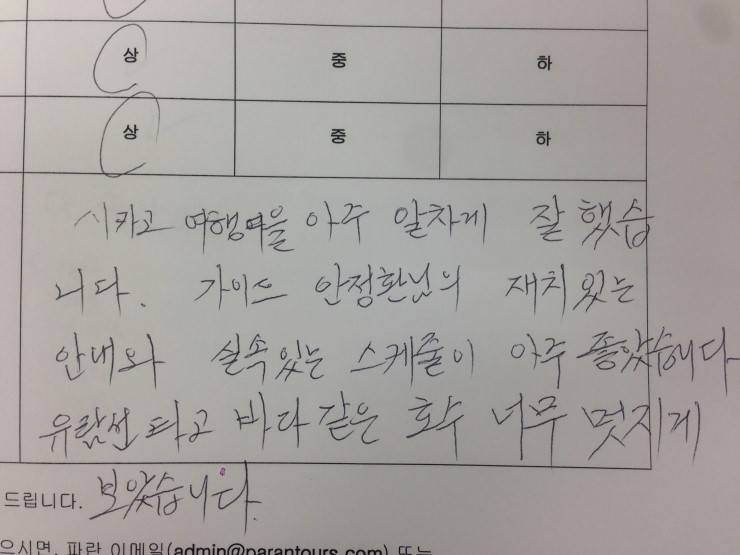 상 중 하
상 중 하
시카고 여행을 아주 알차게 잘 했습
니다. 가이드 안정환님의 재치있는
안내와 실속있는 스케줄이 아주 좋았습니다
유람선 타고 바다같은 호수 너무 멋지게
드립니다. 보았습니다.
으시면, 파란 이메일(admin@parantours.com) 또는